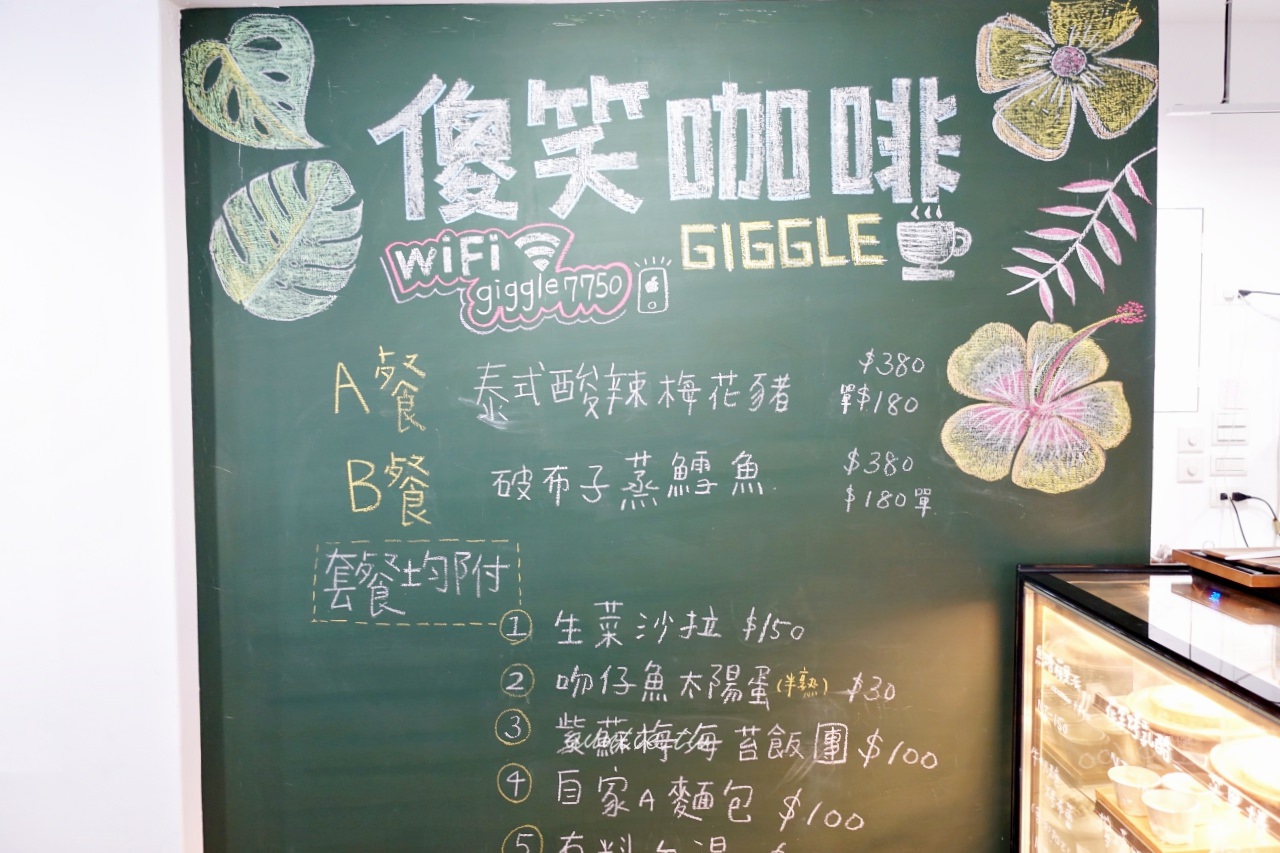 傻笑咖啡
GIGGLE
WiFi
giggle7750
A餐 泰式酸辣梅花豬 $380
單$180
B餐 破布子蒸鱈魚 $380
$180單
套餐均附
① 生菜沙拉 $150
② 吻仔魚太陽蛋(半熟) $30
③ 紫蘇梅海苔飯團 $100
④ 自家A麵包 $100
⑤